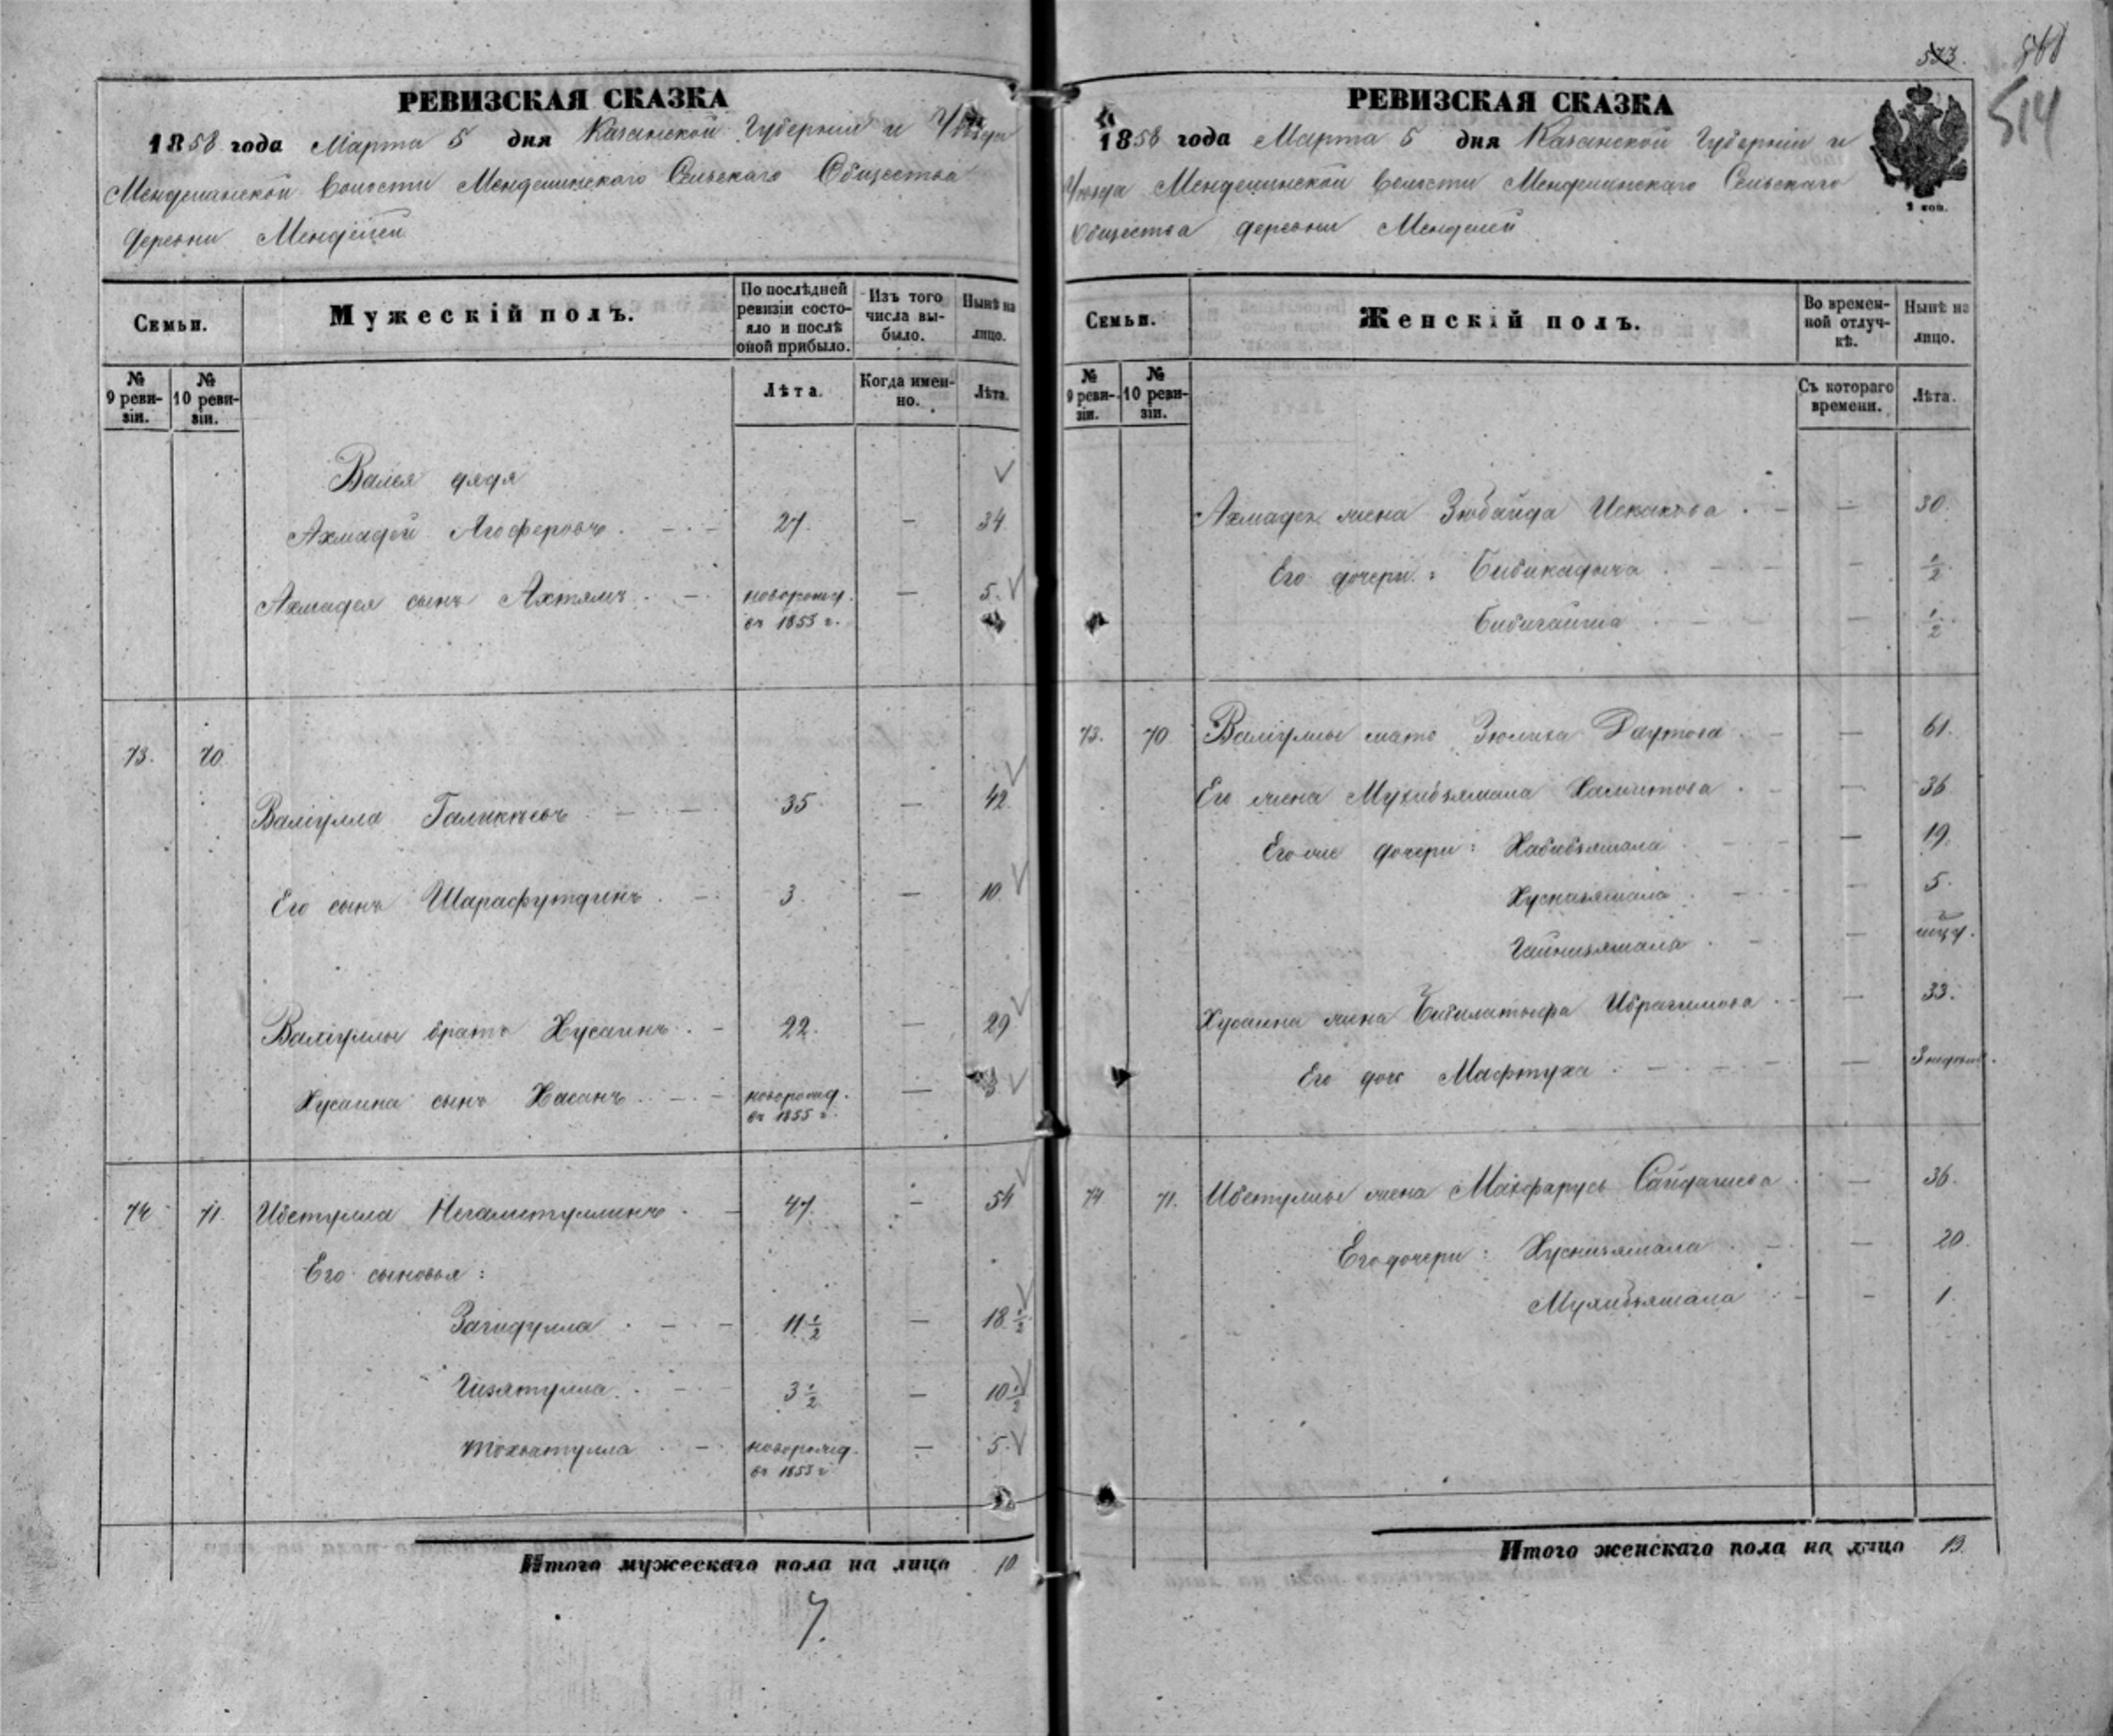 533. 514
РЕВИЗСКАЯ СКАЗКА
1858 года Марта 5 дня Казанской Губерніи и Уѣзда
Менделинской Волости Менделинскаго Сельскаго Общества
деревни Менделей
Семьи. Мужескій полъ. По послѣдней ревизіи состояло и послѣ оной прибыло. Изъ того числа выбыло. Нынѣ на лицо.
№ 9 ревизіи. № 10 ревизіи. Лѣта. Когда именно. Лѣта.
Валея дядя
Ахмадей Ягоферовъ 27. — 34
Ахмадея сынъ Ахтямъ новорожд. въ 1853 г. — 5.
73. 70
Валіулла Галикѣевъ 35 — 42
Его сынъ Шарафутдинъ 3. — 10
Валіуллы братъ Хусаинъ 22. — 29
Хусаина сынъ Хасанъ новорожд. въ 1855 г. — 3
74 71. Ибетулла Негаметуллинъ 47. — 54
Его сыновья:
Загидулла 11 1/2 — 18 1/2
Гизятулла 3 1/2 — 10 1/2
новорожд. въ 1853 г — 5.
Итого мужескаго пола на лицо 10
7.
РЕВИЗСКАЯ СКАЗКА
1858 года Марта 5 дня Казанской Губерніи и
Уѣзда Менделинской Волости Менделинскаго Сельскаго
Общества деревни Менделей
1 коп.
Семьи. Женскій полъ. Во временной отлучкѣ. Нынѣ на лицо.
№ 9 ревизіи. № 10 ревизіи. Съ котораго времени. Лѣта.
Ахмадея жена Зюбайда Искакова — 30.
Его дочери: Бибикадыча — 1/2
Бибигайша — 1/2
73. 70 Валіуллы мать Зюлиха Даутова — 61.
Его жена Мухибзямала Хамитова — 36
Его же дочери: Хабибзямала — 19.
Хуснизямала — 5.
Гайнизямала —
Хусаина жена Бибилатыфа Ибрагимова — 33.
Его дочь Мафтуха — 3 недѣли.
74 71. Ибетуллы жена Махфарусь Сайдашева — 36.
Его дочери: Хуснизямала — 20.
Мухибзямала — 1.
Итого женскаго пола на лицо 13.